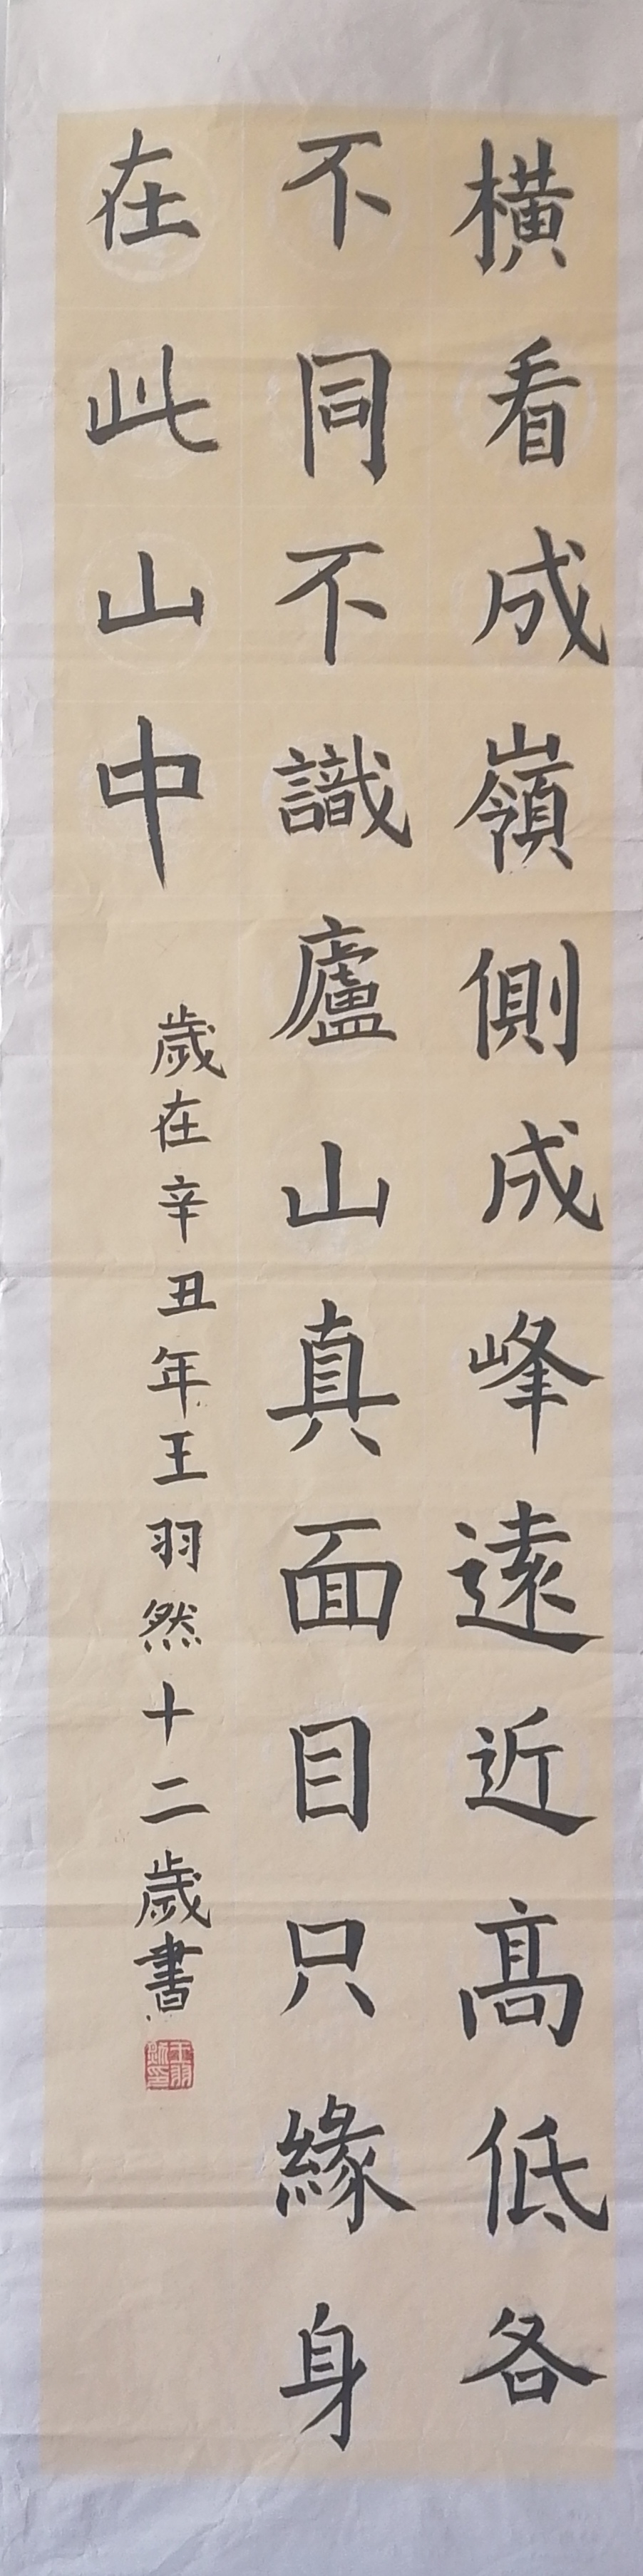 橫看成嶺側成峰遠近高低各
不同不識廬山真面目只緣身
在此山中
歲在辛丑年王羽然十二歲書